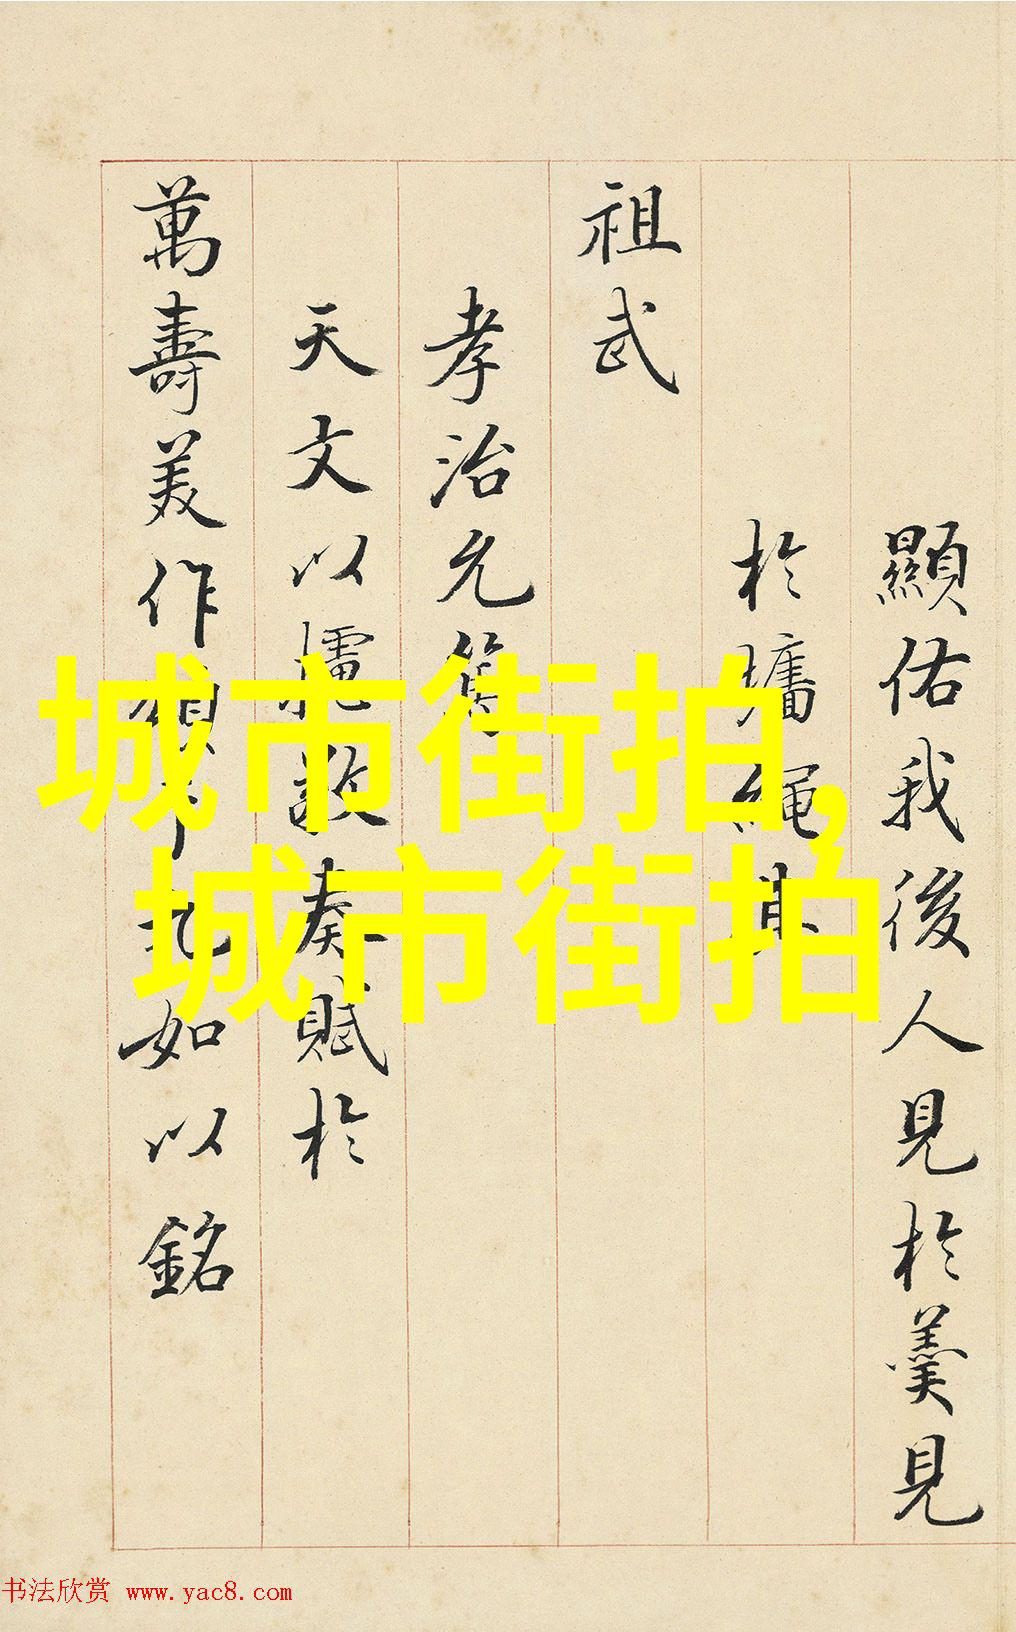 顯佑我後人見於羹見
於牆繩其
祖武
孝治允
天文以攄奏賦於
萬壽美作九如以銘
城市街拍,
城市街拍
书法欣赏 www.yac8.com